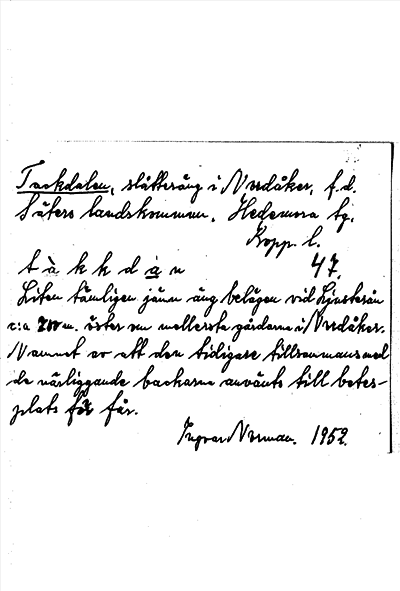 Tackdalen, slåtteräng i Nordåker, f.d.
Säters landskommun. Hedemora tg.
Kopp. l.
t à k k d a n 47.
Liten tämligen jämn äng belägen vid Ljusterån
c:a 700 m. öster om mellersta gårdarna i Nordåker.
Namnet av att den tidigare tillsammans med
de närliggande backarna använts till betes-
plats för får.
Ingvar Norman. 1952.